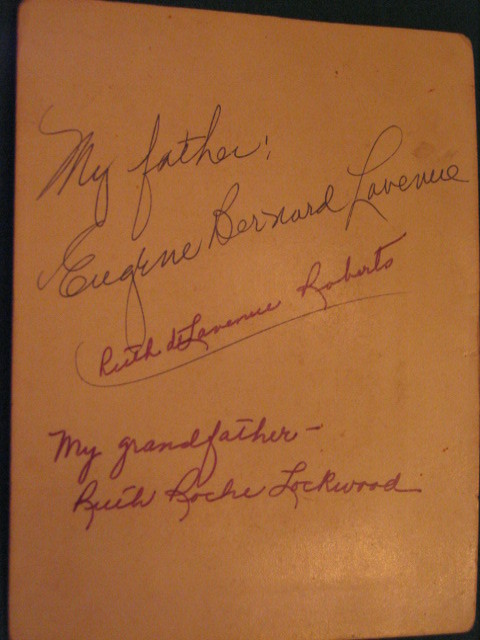 My father:
Eugene Bernard Lavenue
Ruth deLavenue Roberts
My grandfather-
Ruth Roche Lockwood